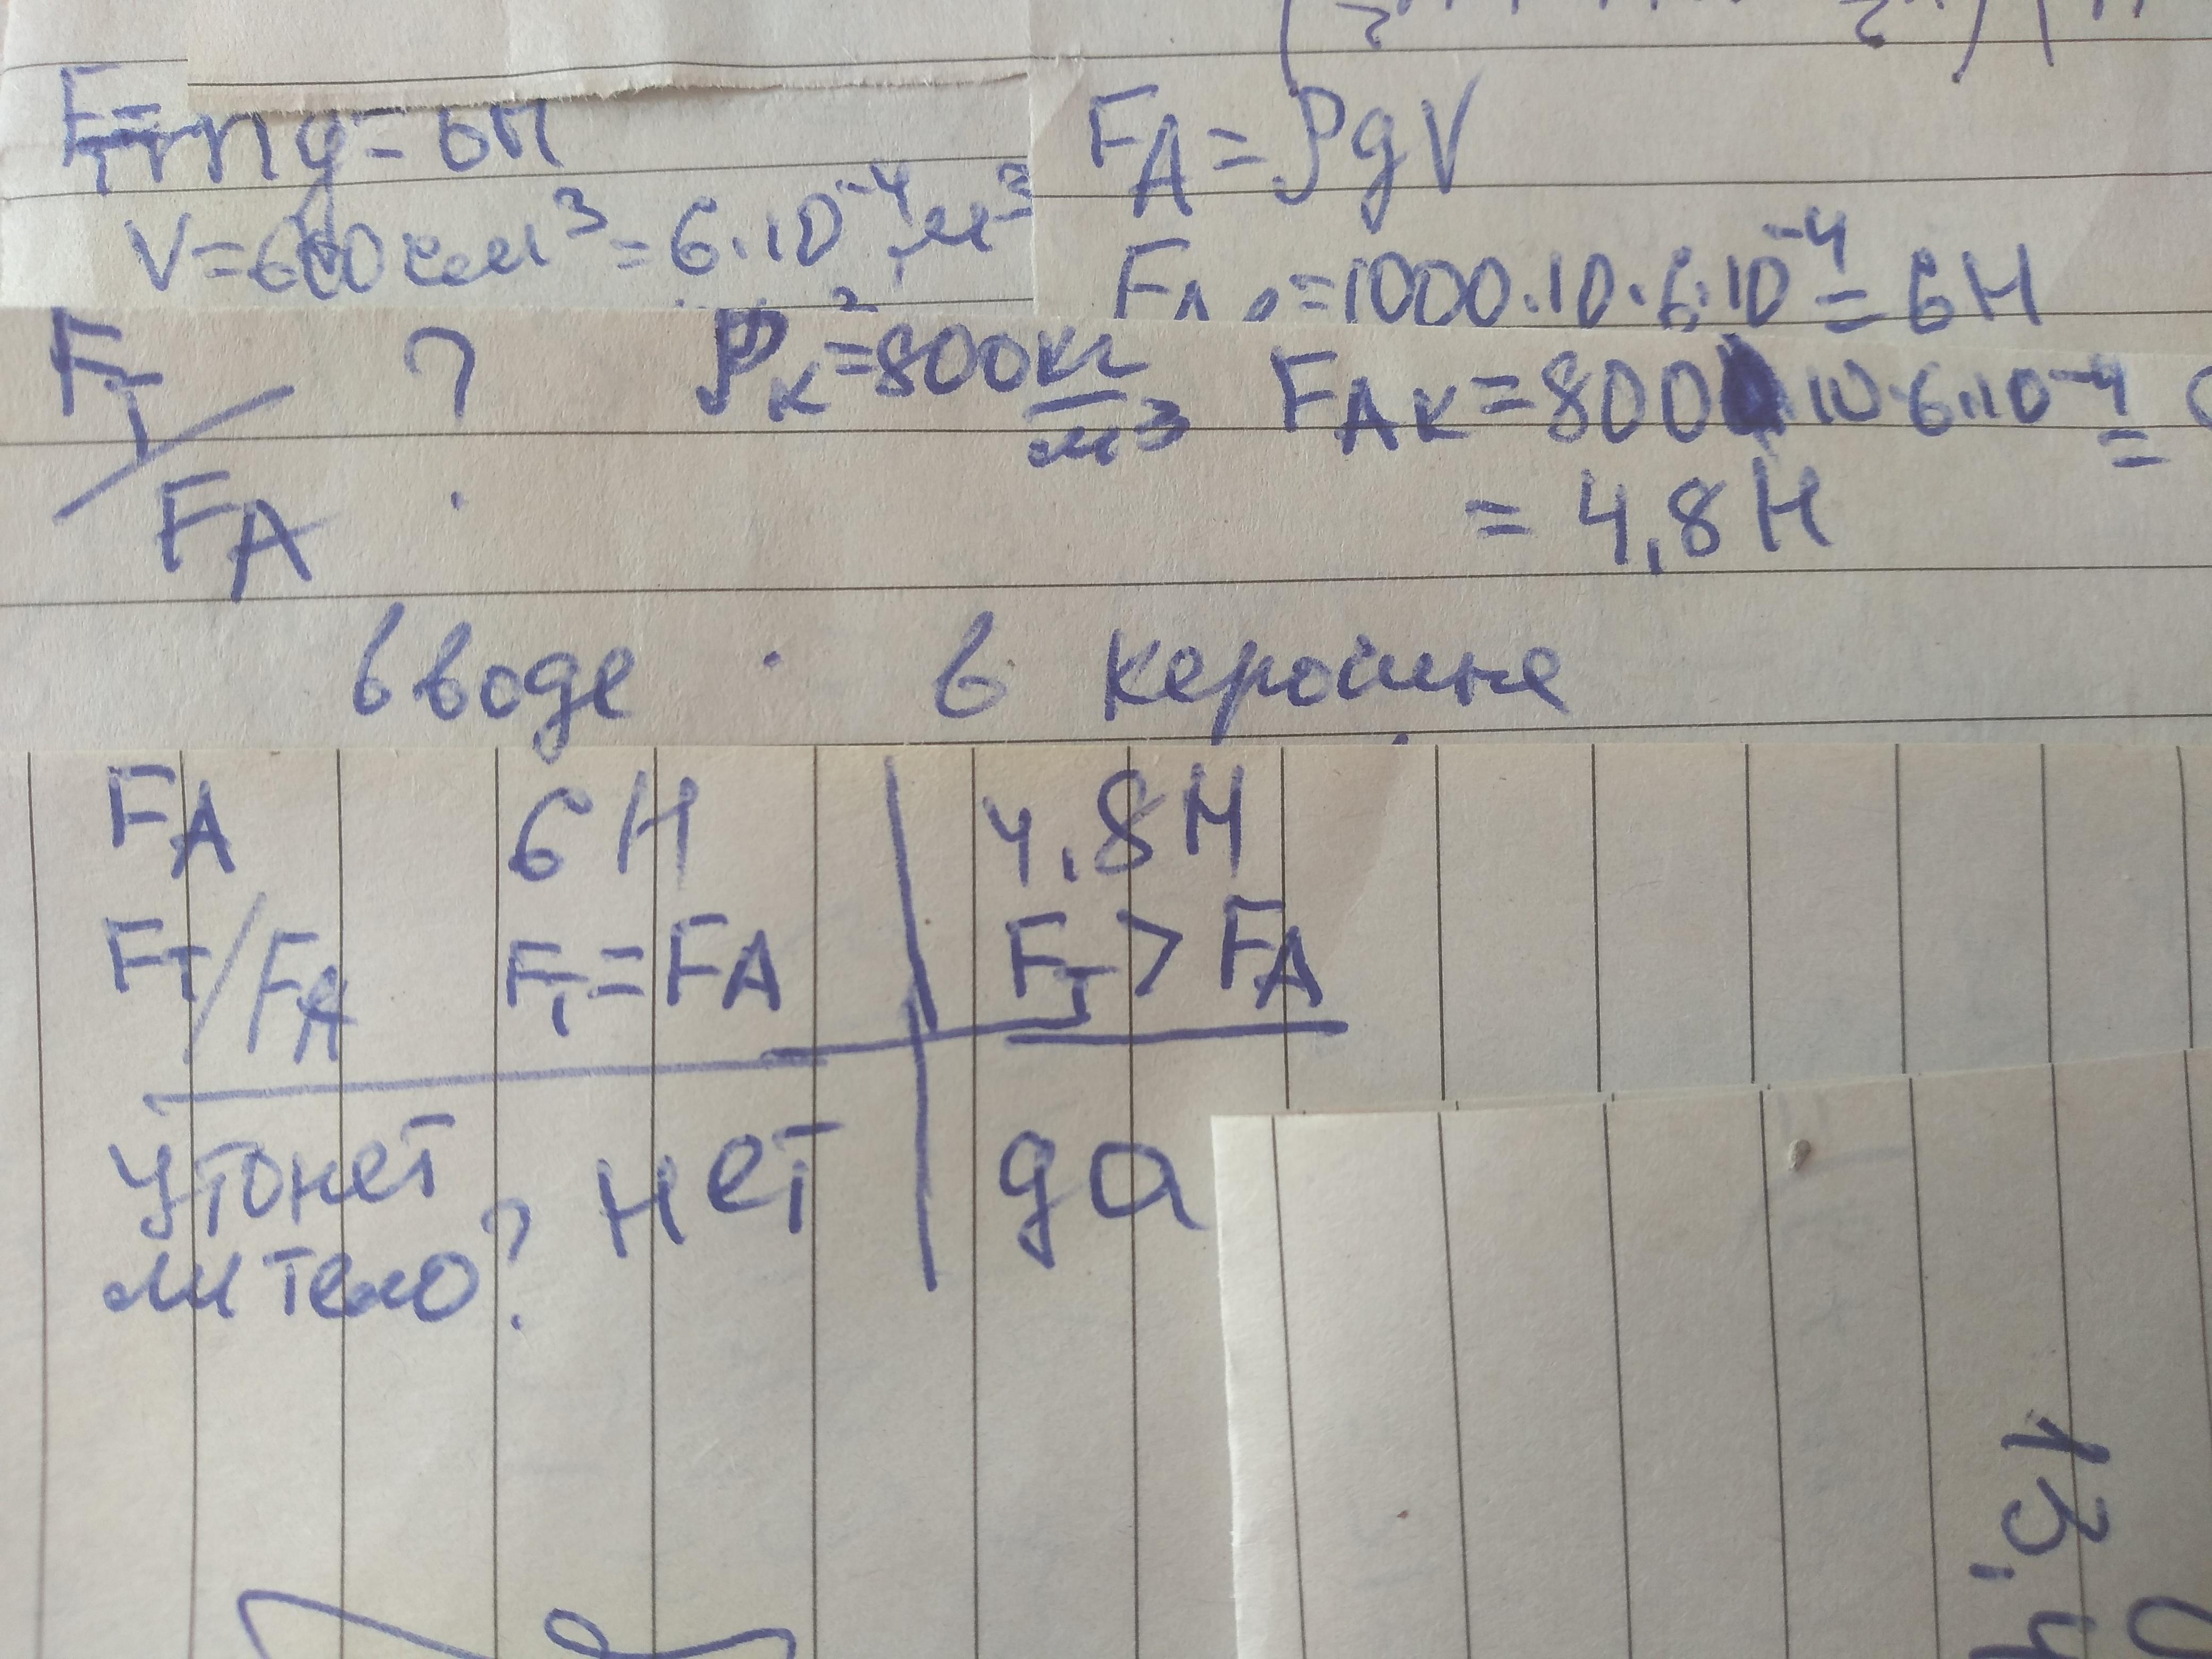 Fт=mg=6Н
V=600см³=6·10⁻⁴м³
FA=ρgV
=1000·10·6·10⁻⁴=6Н
Fт/FA ?
ρк=800кг/м³
FAк=800·10·6·10⁻⁴=
=4,8Н
в воде в керосине
FA 6Н 4,8Н
Fт/FA Fт=FA Fт>FA
утонет
ли тело? нет да
13,4